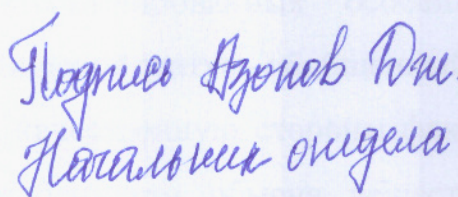 Подпись Азонов Дж.
Начальник отдела